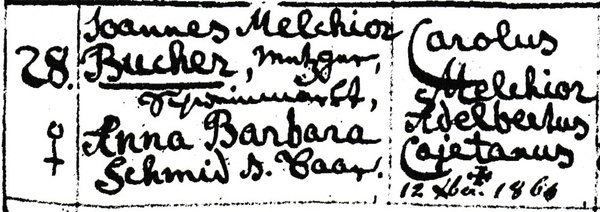 28.
Joannes Melchior
Bucher, Metzger,
Schweinmarkt,
Anna Barbara
Schmid v. Baar.
Carolus
Melchior
Adelbertus
Cajetanus
12 Xber. 186